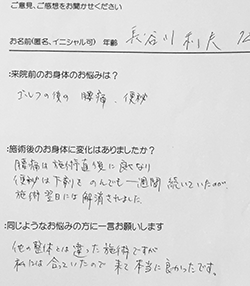 ご意見、ご感想をお聞かせください
お名前(匿名、イニシャル可) 年齢 長谷川利夫 72
:来院前のお身体のお悩みは?
ゴルフの後の腰痛、便秘
:施術後のお身体に変化はありましたか?
腰痛は施術直後に良くなり
便秘は下剤をのんでも一週間続いていたが
施術翌日には解消されました。
:同じようなお悩みの方に一言お願いします
他の整体とは違った施術ですが
私には合っていたので来て本当に良かったです。